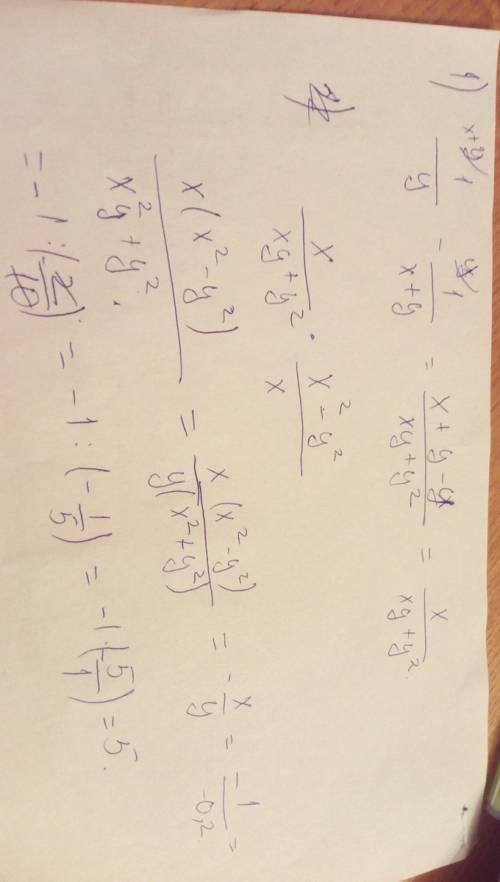 1) x+y/1/y - y/1/x+y = x+y-y/xy+y² = x/xy+y².
2) x/xy+y² · x²-y²/x
x(x²-y²)/x²y+y². = x(x²-y²)/y(x²+y²) = -x/y = -1/-0,2 =
= -1:(2/10) = -1:(-1/5) = -1·(-5/1) = 5.